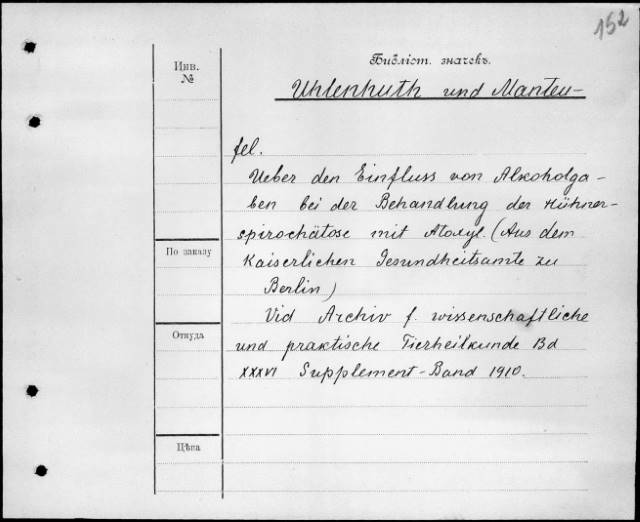 152
Инв.
№
Библіот. значекъ.
Uhlenhuth und Manteu-
fel.
Ueber den Einfluss von Alkoholga-
ben bei der Behandlung der Hühner-
spirochätose mit Atoxyl. (Aus dem
Kaiserlichen Gesundheitsamte zu
Berlin)
По заказу
Vid Archiv f. wissenschaftliche
und praktische Tierheilkunde Bd
Откуда
XXXVI Supplement-Band 1910.
Цѣна